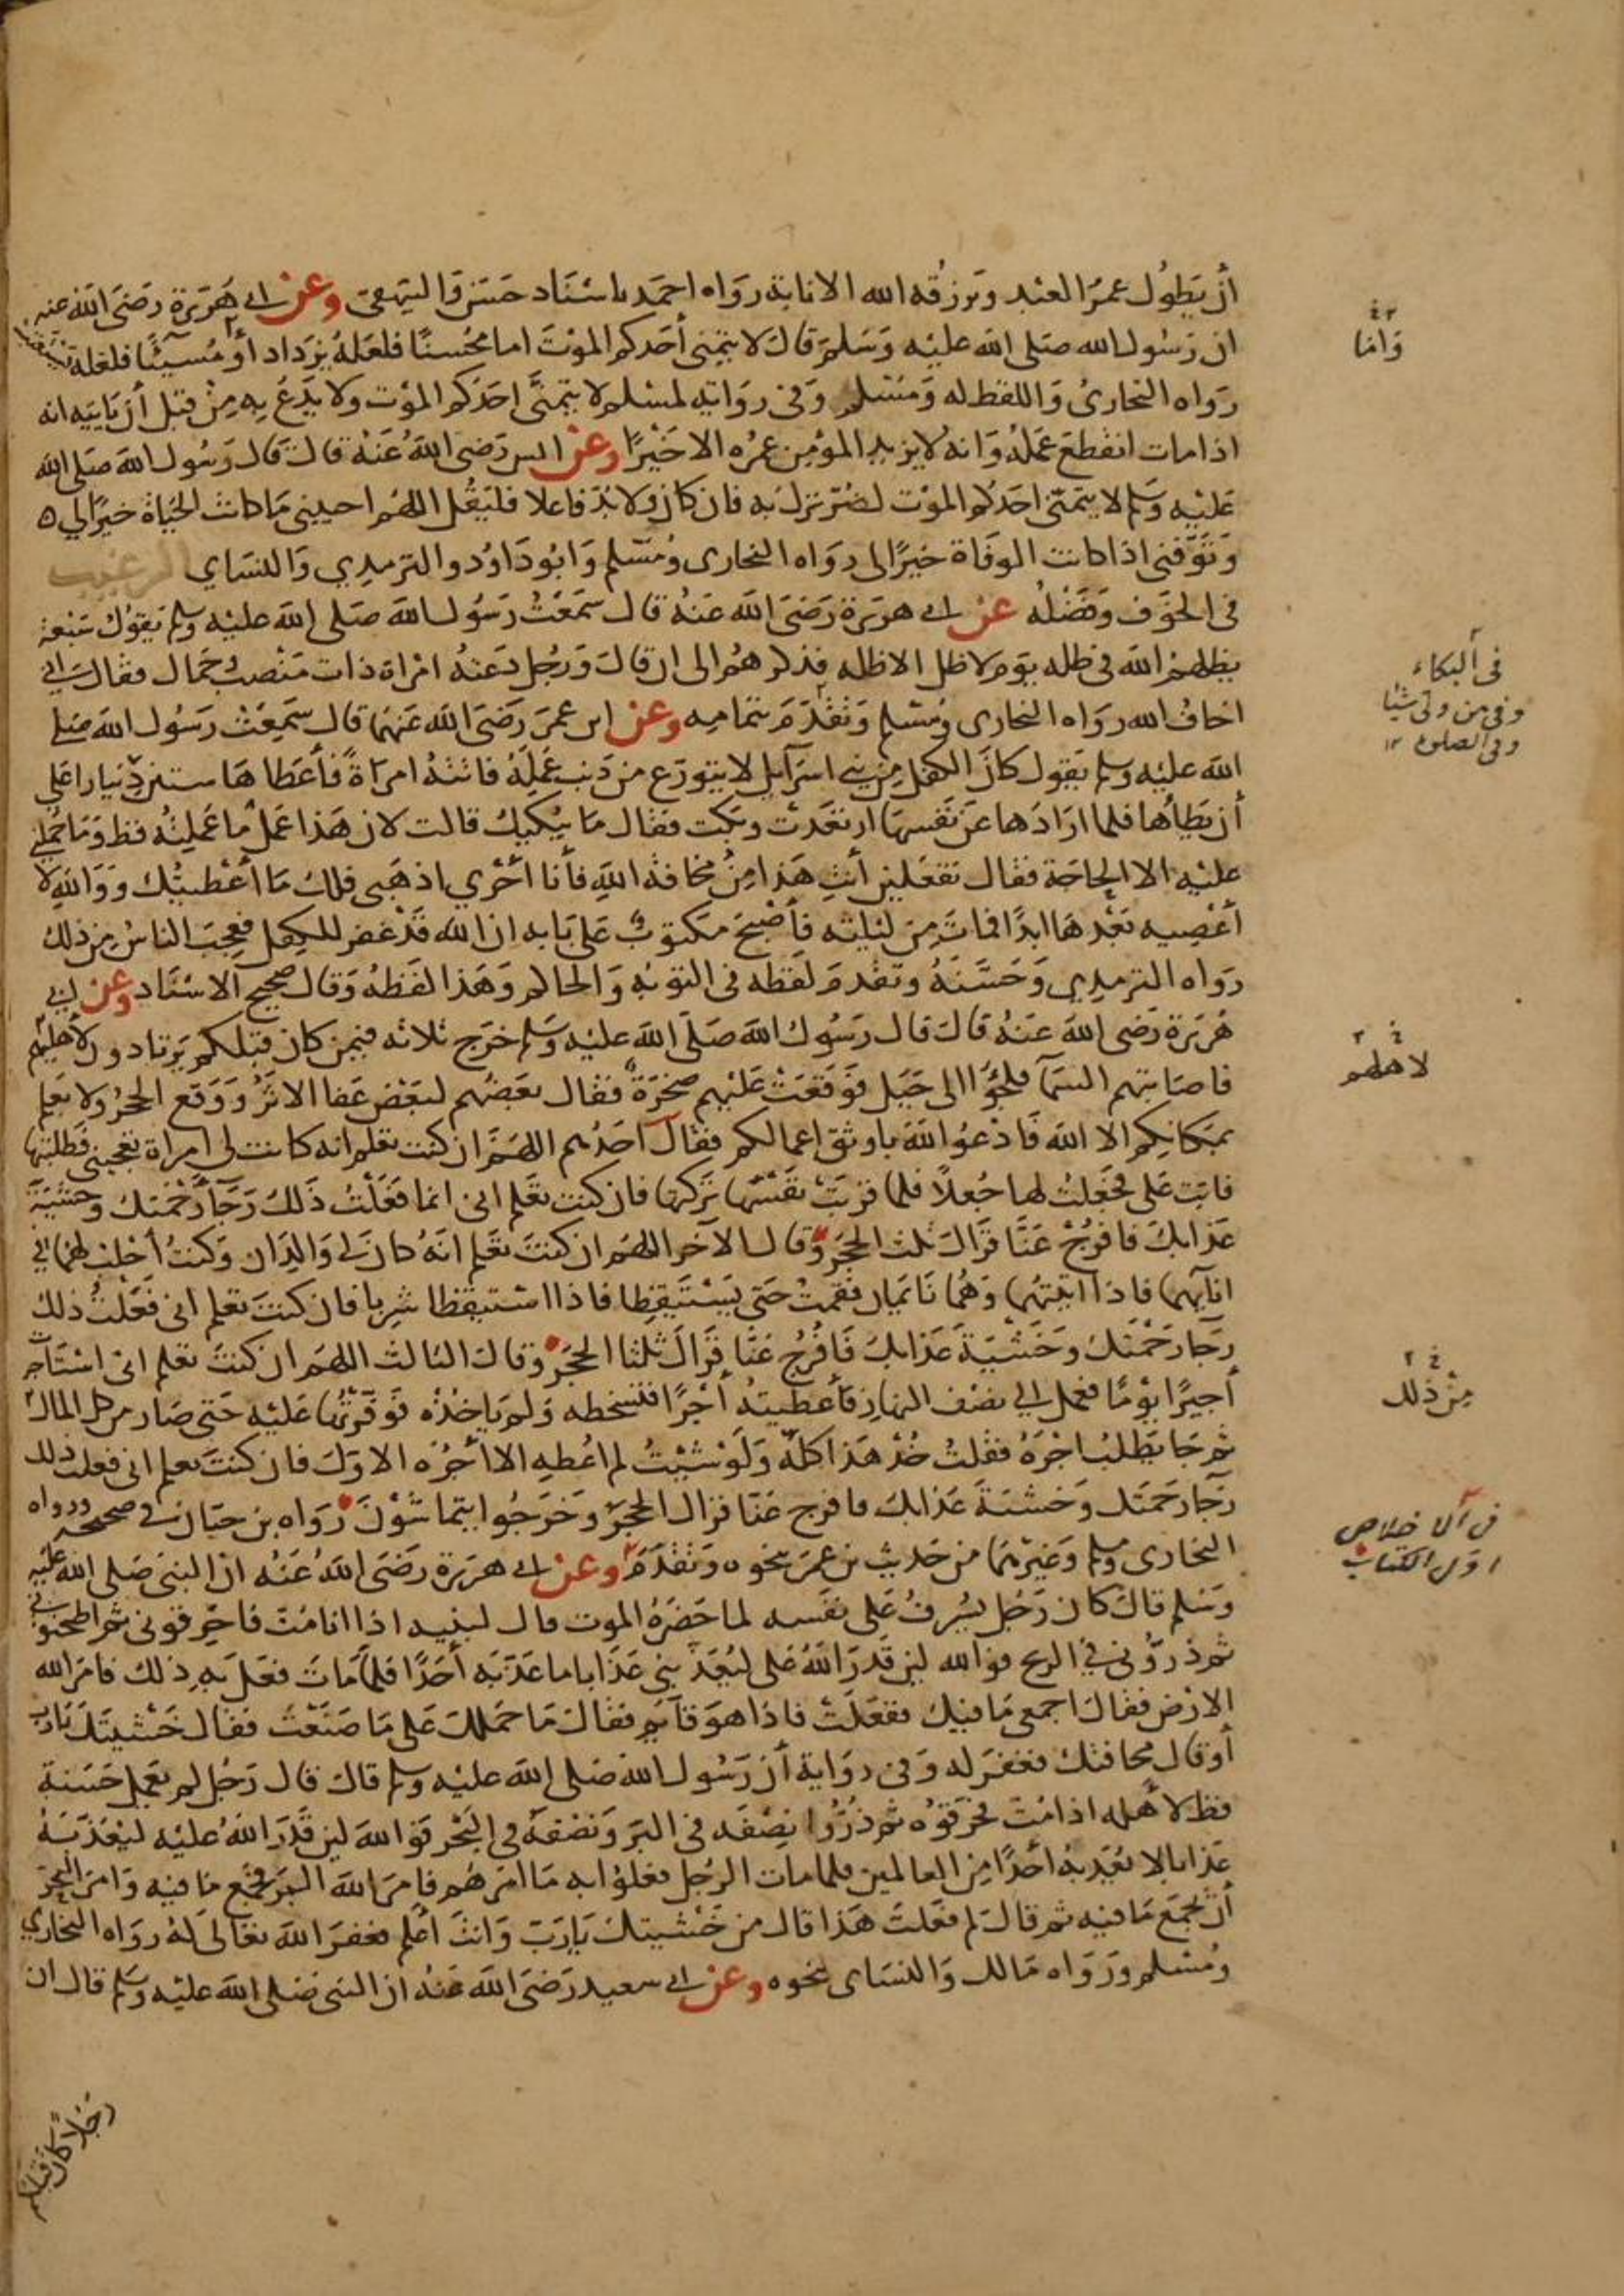 أن يطول عمر العبد ويرزقه الله الانابة رواه احمد باسناد حسن والبيهقي وعن ابي هريرة رضي الله عنه
ان رسول الله صلى الله عليه وسلم قال لا يتمنى أحدكم الموت اما محسنا فلعله يزداد أو مسيئا فلعله يستعتب
رواه البخاري واللفظ له ومسلم وفي رواية لمسلم لا يتمنى احدكم الموت ولا يدع به من قبل أن يأتيه انه
اذا مات انقطع عمله وانه لا يزيد المؤمن عمره الا خيرا وعن انس رضي الله عنه قال قال رسول الله صلى الله
عليه وسلم لا يتمنى احدكم الموت لضر نزل به فان كان ولا بد فاعلا فليقل اللهم احييني ما كانت الحياة خيرا لي ه
وتوفني اذا كانت الوفاة خيرا لي رواه البخاري ومسلم وابو داود والترمذي والنسائي الرغيب
في الخوف وفضله عن ابي هريرة رضي الله عنه قال سمعت رسول الله صلى الله عليه وسلم يقول سبعة
يظلهم الله في ظله يوم لا ظل الا ظله فذكرهم الى ان قال ورجل دعته امراة ذات منصب وجمال فقال اني
اخاف الله رواه البخاري ومسلم وتقدم بتمامه وعن ابن عمر رضي الله عنهما قال سمعت رسول الله صلى
الله عليه وسلم يقول كان الكفل من بني اسرآيل لا يتورع من ذنب عمله فاتته امرأة فأعطاها ستين دينارا على
أن يطأها فلما ارادها عن نفسها ارتعدت وبكت فقال ما يبكيك قالت لان هذا عمل ما عملته قط وما حملني
عليه الا الحاجة فقال تفعلين أنت هذا من مخافة الله فأنا أحرى اذهبي فلك ما أعطيتك ووالله لا
أعصيه بعدها ابدا فمات من ليلته فأصبح مكتوب على بابه ان الله قد غفر للكفل فعجب الناس من ذلك
رواه الترمذي وحسنه وتقدم لفظه في التوبة والحاكم وهذا لفظه وقال صحيح الاسناد وعن ابي
هريرة رضي الله عنه قال قال رسول الله صلى الله عليه وسلم خرج ثلاثة فيمن كان قبلكم يرتادون لأهليهم
فاصابتهم السماء فلجؤا الى جبل فوقعت عليهم صخرة فقال بعضهم لبعض عفا الاثر ووقع الحجر ولا يعلم
بمكانكم الا الله فادعوا الله باوثق اعمالكم فقال احدهم اللهم ان كنت تعلم انه كانت لي امراة تعجبني فطلبتها
فابت علي فجعلت لها جعلا فلما قربت نفسها تركتها فان كنت تعلم اني انما فعلت ذلك رجاء رحمتك وخشية
عذابك فافرج عنا فزال ثلث الحجر وقال الآخر اللهم ان كنت تعلم انه كان لي والدان وكنت أحلب لهما في
انآيهما فاذا اتيتهما وهما نائمان فقمت حتى يستيقظا فاذا استيقظا شربا فان كنت تعلم اني فعلت ذلك
رجاء رحمتك وخشية عذابك فافرج عنا فزال ثلثا الحجر وقال الثالث اللهم ان كنت تعلم اني استأجرت
أجيرا يوما فعمل لي نصف النهار فأعطيته أجرا فتسخطه ولم ياخذه فوفرتها عليه حتى صار من كل المال
ثم جا يطلب اجره فقلت خذ هذا كله ولو شئت لم اعطه الا أجره الاول فان كنت تعلم اني فعلت ذلك
رجاء رحمتك وخشية عذابك فافرج عنا فزال الحجر وخرجوا يتماشون رواه بن حبان في صحيحه ورواه
البخاري ومسلم وغيرهما من حديث بن عمر بنحوه وتقدم وعن ابي هريرة رضي الله عنه ان النبي صلى الله عليه
وسلم قال كان رجل يسرف على نفسه لما حضره الموت قال لبنيه اذا انا مت فاحرقوني ثم اطحنوني
ثم ذروني في الريح فوالله لين قدر الله على ليعذبني عذابا ما عذبه أحدا فلما مات فعل به ذلك فامر الله
الارض فقال اجمعي ما فيك ففعلت فاذا هو قآيم فقال ما حملك على ما صنعت فقال خشيتك يا رب
أو قال مخافتك فغفر له وفي رواية أن رسول الله صلى الله عليه وسلم قال قال رجل لم يعمل حسنة
قط لأهله اذا مت فحرقوه ثم ذروا نصفه في البر ونصفه في البحر فوالله لين قدر الله عليه ليعذبنه
عذابا لا يعذبه أحدا من العالمين فلما مات الرجل فعلوا به ما امرهم فامر الله البر فجمع ما فيه وامر البحر
أن يجمع ما فيه ثم قال لم فعلت هذا قال من خشيتك يا رب وانت أعلم فغفر الله تعالى له رواه البخاري
ومسلم ورواه مالك والنسائي نحوه وعن ابي سعيد رضي الله عنه ان النبي صلى الله عليه وسلم قال ان
رجلا كان قبلكم
واما
في البكاء
وفي من ولي شيئا
وفي الصلوة
لاهلهم
من ذلك
في الاخلاص
اول الكتاب